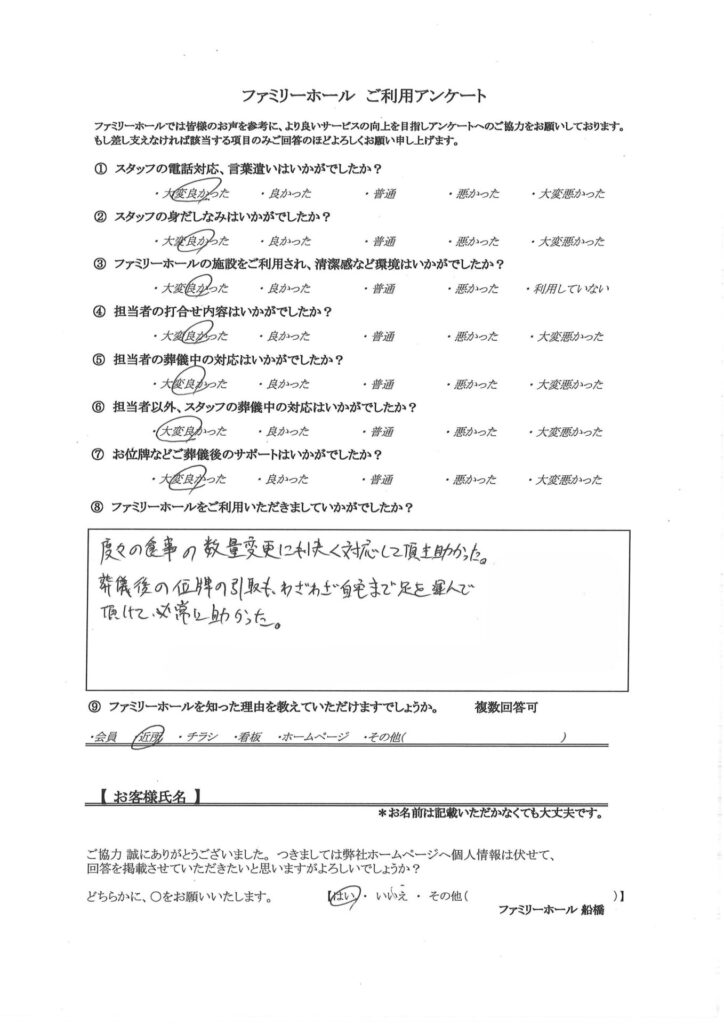 ファミリーホール ご利用アンケート
ファミリーホールでは皆様のお声を参考に、より良いサービスの向上を目指しアンケートへのご協力をお願いしております。
もし差し支えなければ該当する項目のみご回答のほどよろしくお願い申し上げます。
① スタッフの電話対応、言葉遣いはいかがでしたか？
・大変良かった ・良かった ・普通 ・悪かった ・大変悪かった
② スタッフの身だしなみはいかがでしたか？
・大変良かった ・良かった ・普通 ・悪かった ・大変悪かった
③ ファミリーホールの施設をご利用され、清潔感など環境はいかがでしたか？
・大変良かった ・良かった ・普通 ・悪かった ・利用していない
④ 担当者の打合せ内容はいかがでしたか？
・大変良かった ・良かった ・普通 ・悪かった ・大変悪かった
⑤ 担当者の葬儀中の対応はいかがでしたか？
・大変良かった ・良かった ・普通 ・悪かった ・大変悪かった
⑥ 担当者以外、スタッフの葬儀中の対応はいかがでしたか？
・大変良かった ・良かった ・普通 ・悪かった ・大変悪かった
⑦ お位牌などご葬儀後のサポートはいかがでしたか？
・大変良かった ・良かった ・普通 ・悪かった ・大変悪かった
⑧ ファミリーホールをご利用いただきましていかがでしたか？
度々の食事の数量変更に対応して頂き助かった。
葬儀後の位牌の引取も、わざわざ自宅まで足を運んで
頂けて、助かった。
⑨ ファミリーホールを知った理由を教えていただけますでしょうか。 複数回答可
・会員 ・近所 ・チラシ ・看板 ・ホームページ ・その他( )
【 お客様氏名 】
＊お名前は記載いただかなくても大丈夫です。
ご協力 誠にありがとうございました。つきましては弊社ホームページへ個人情報は伏せて、
回答を掲載させていただきたいと思いますがよろしいでしょうか？
どちらかに、〇をお願いいたします。 【はい ・ いいえ ・ その他( )】
ファミリーホール 船橋